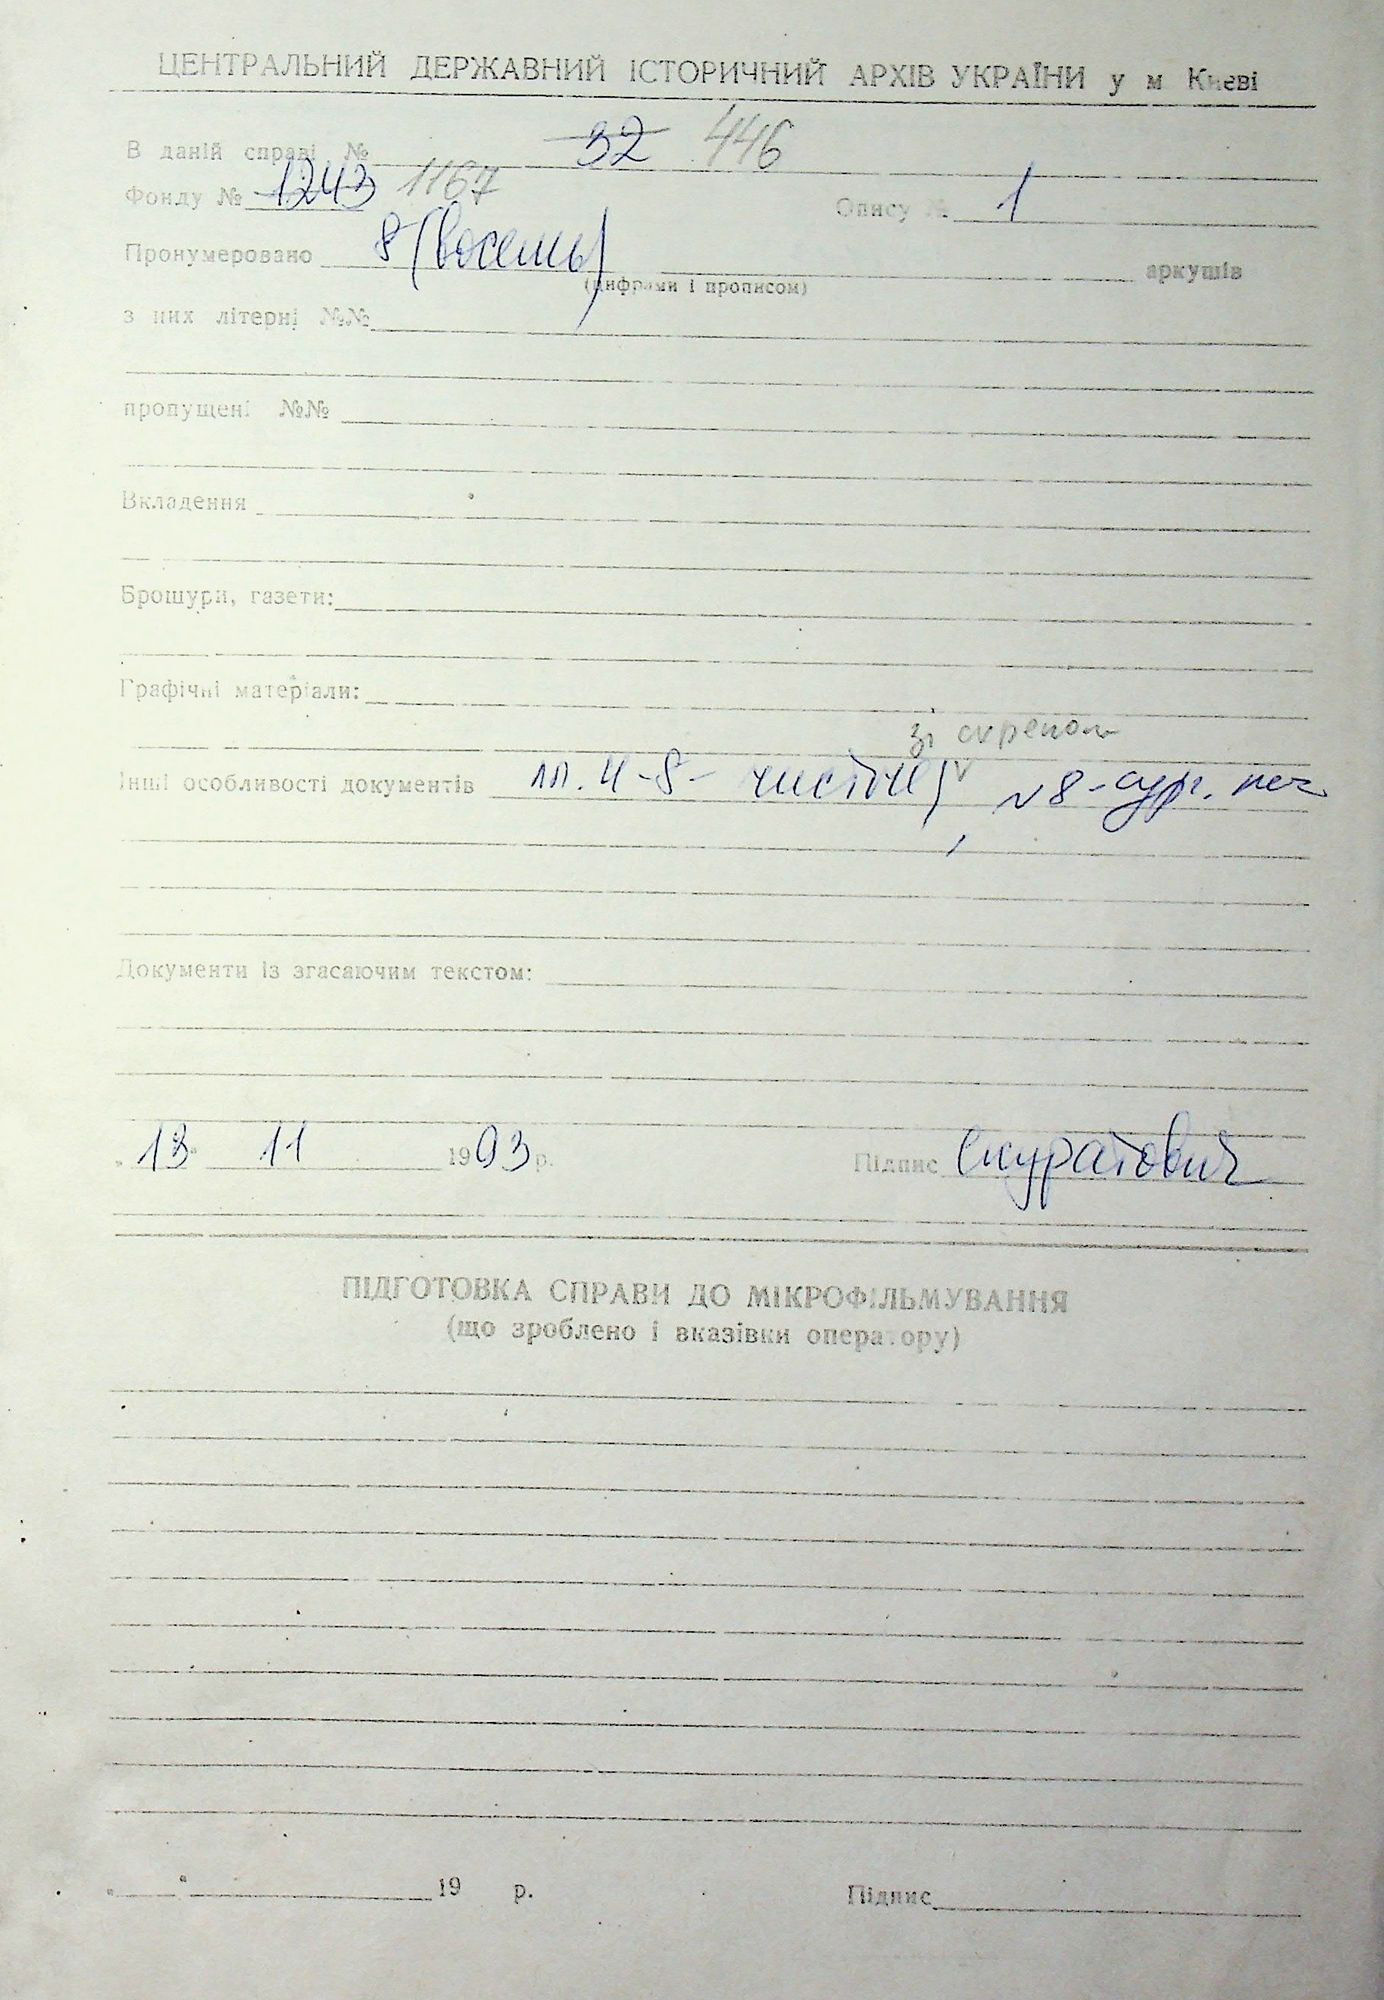 ЦЕНТРАЛЬНИЙ ДЕРЖАВНИЙ ІСТОРИЧНИЙ АРХІВ УКРАЇНИ у м Києві
В даній справі № 32 446
Фонду № 1243 1167 Опису № 1
Пронумеровано 8 (восемь) аркушів
(цифрами і прописом)
з них літерні №№
пропущені №№
Вкладення
Брошури, газети:
Графічні матеріали:
зі скрепою
Інші особливості документів лл. 4-8- чисті 8-сург. печ
Документи із згасаючим текстом:
„13“ 11 1993 р. Підпис Скуратович
ПІДГОТОВКА СПРАВИ ДО МІКРОФІЛЬМУВАННЯ
(що зроблено і вказівки оператору)
„ “ 19 р. Підпис